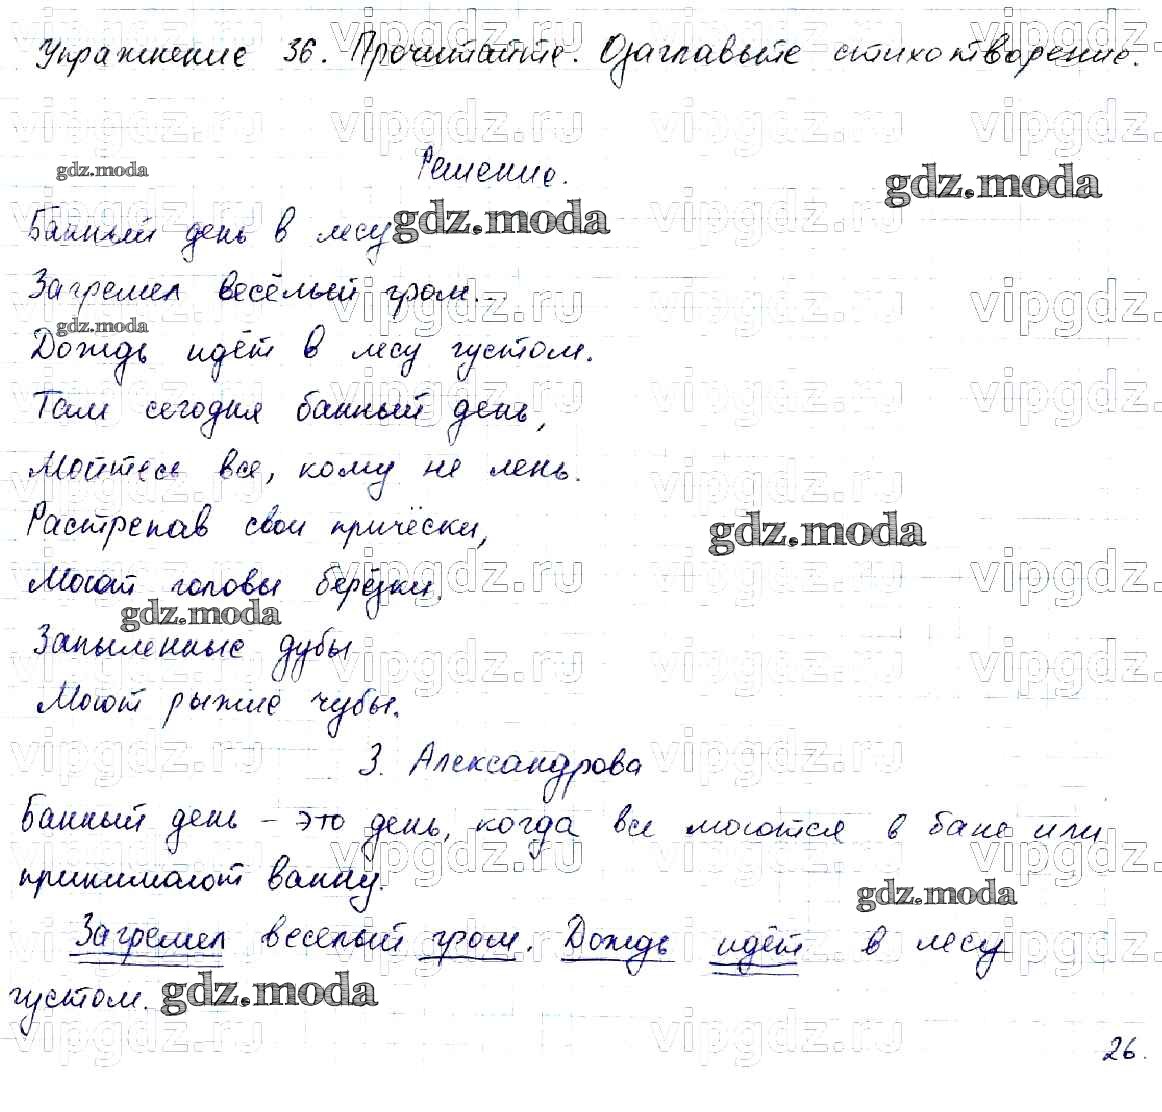 Упражнение 36. Прочитайте. Озаглавьте стихотворение.
Решение.
Банный день в лесу
Загремел весёлый гром...
Дождь идёт в лесу густом.
Там сегодня банный день,
Мойтесь все, кому не лень.
Растрепав свои причёски,
Моют головы берёзки.
Запыленные дубы
Моют рыжие чубы.
З. Александрова
Банный день – это день, когда все моются в бане или
принимают ванну.
Загремел веселый гром. Дождь идёт в лесу
густом.
26.
vipgdz.ru
gdz.moda